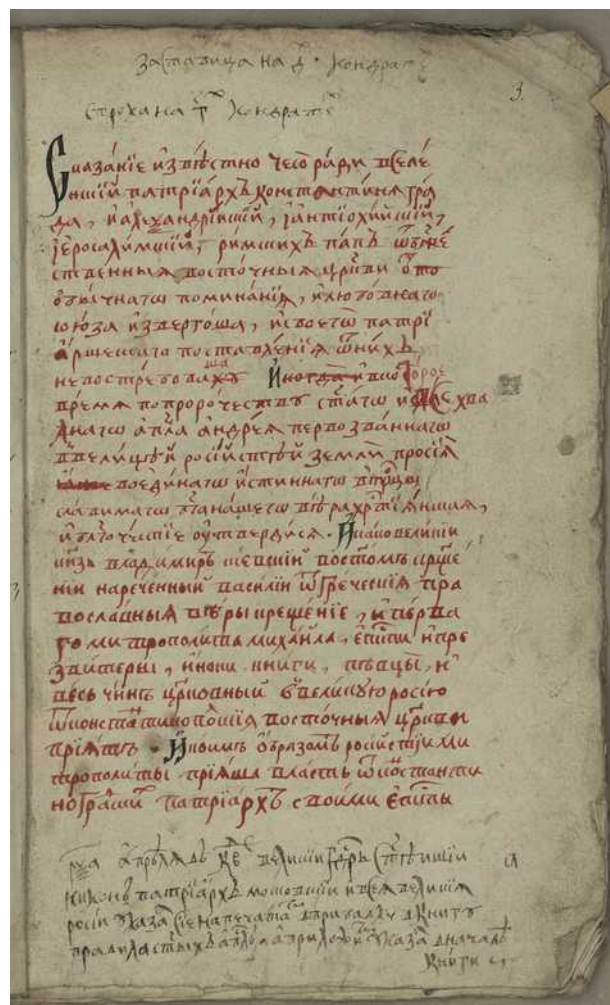 Заставица на д҃ кондратє
3.
строка на г҃ кондратє
Сказа́нїе и҆звѣ́стно чесѡ̀ ра́ди вселе́
нскїй патрїа́рхъ константи́нягра́
да, и҆ а҆леѯандрі́йскїй, і҆ а҆нтїохі́йскїй,
і҆еросали́мскїй, ри́мскихъ па́пъ ѿ бж҃е́
ственныя восто́чныя цр҃кви
о҆бы́чнагѡ помина́нїя, и҆ любо́внагѡ
сою́за и҆зверго́ша, и҆ своегѡ̀ патрї
а́ршескагѡ поставле́нїя ѿ ни́хъ
не востре́боваша И҆ногда̀ и҆ второе
вре́мя по проро́чествꙋ ст҃а́гѡ и҆ всехва
лнагѡ а҆пⷭ҇ла а҆ндре́я первозва́ннагѡ
в вели́цѣй росі́йстѣй землѝ просїѧ̀
во еди́нагѡ и҆́стиннагѡ
сла́вимагѡ бг҃а на́шегѡ вѣ́ра хрⷭ҇тїя́нская,
и҆ блг҃оче́стїе ᲂу҆тверди́ся. И҆ ꙗ҆́кѡ вели́кїй
кнѧ́зь влади́миръ кі́евскїй во ст҃о́мъ кр҃ще́
нїи нарече́нный васи́лїи ѿ гре́ческїя пра
восла́вныя вѣ́ры креще́нїе, и҆ пе́рва
го митрополи́та михаи́ла, є҆пⷭ҇кпы и҆ пре
зви́теры, и҆ і҆но́ки кни́ги, пѣвцы̀, и҆
ве́сь чи́нъ цр҃ко́вный в вели́кꙋю росі́ю
ѿ константинопо́лскїя восто́чныя цр҃кви
прїѧ́тъ. И҆ ко́имъ ѻ҆́бразомъ росі́йстїи ми
трополи́ты прїѧ́ша вла́сть ѿ константи
ногра́дски патрїа́рхъ с свои́ми є҆пⷭ҇кпы
рѯа а҆прѣля дь к҃е вели́кїи гдⷭ҇рь ст҃ѣ́йшїи
ни́конъ патрїа́рхъ моско́вскїи и҆ всея̀ вели́кїя
росі́и ᲂу҆каза́ сїе напеча́тать в приба́вкꙋ в кни́гꙋ
пра́вила ст҃ы́хъ а҆пⷭ҇лъ ᲂу҆каза́ в нача́лѣ
кни́ги